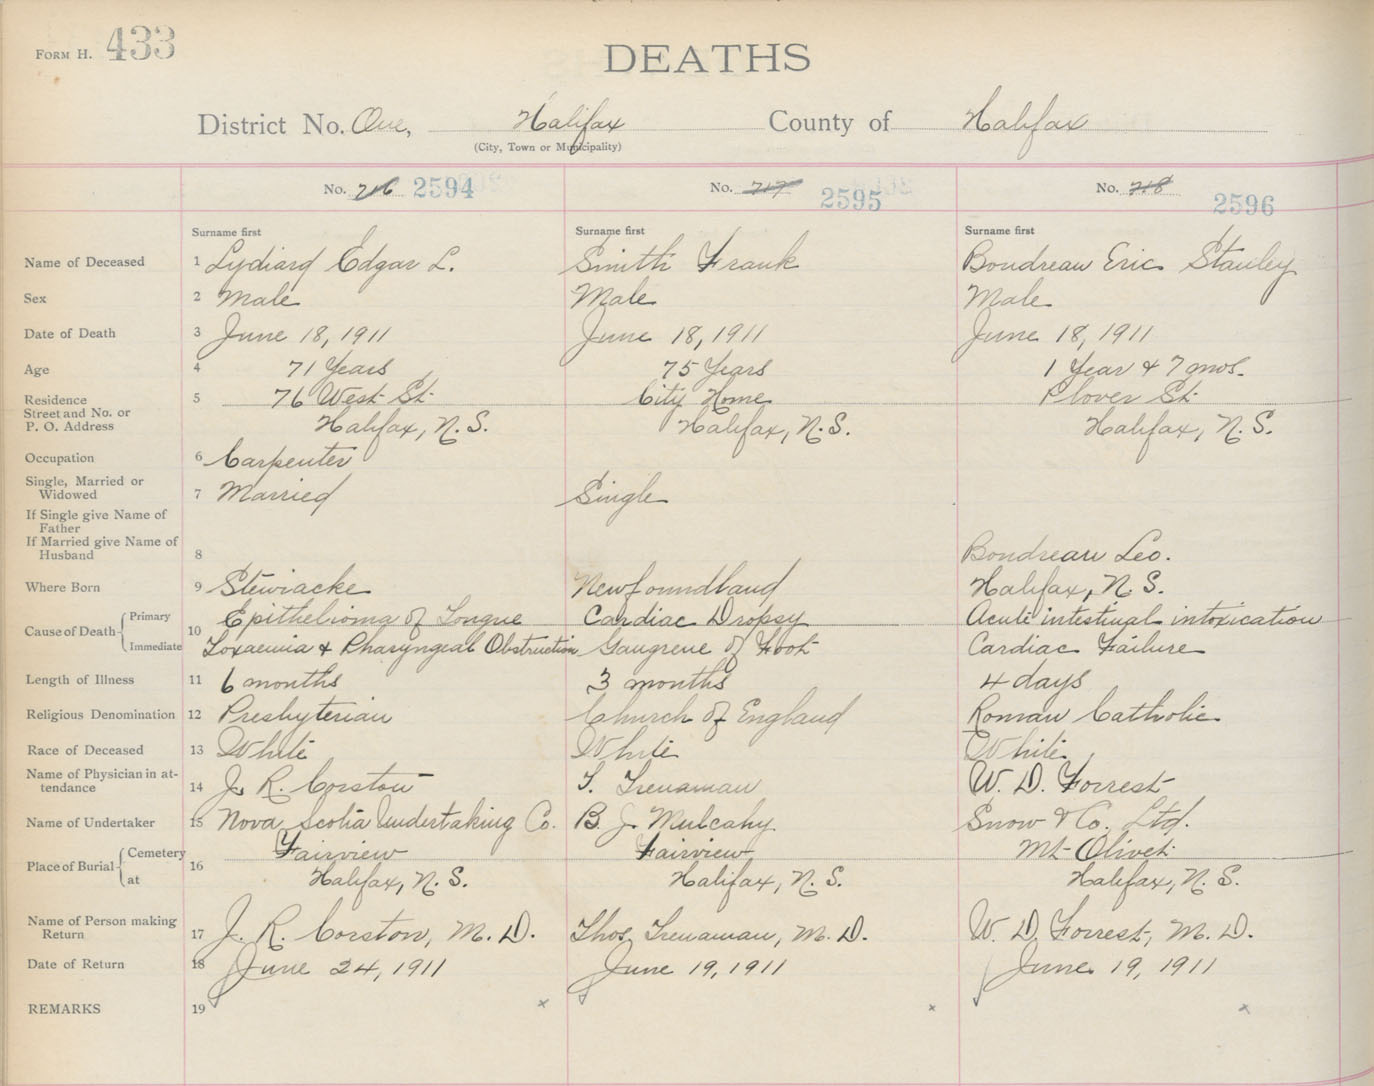 FORM H. 433
DEATHS
District No. One, Halifax County of Halifax
(City, Town or Municipality)
No. 716 2594 No. 717 2595 No. 718 2596
Surname first Surname first Surname first
Name of Deceased 1 Lydiard Edgar L. Smith Frank Boudreau Eric Stanley
Sex 2 Male Male Male
Date of Death 3 June 18, 1911 June 18, 1911 June 18, 1911
Age 4 71 Years 75 Years 1 Year & 7 mos.
Residence 5 76 West St. City Home Plover St.
Street and No. or
P. O. Address Halifax, N. S. Halifax, N. S. Halifax, N. S.
Occupation 6 Carpenter
Single, Married or
Widowed 7 Married Single
If Single give Name of
Father
If Married give Name of
Husband 8 Boudreau Leo.
Where Born 9 Stewiacke Newfoundland Halifax, N. S.
Cause of Death Primary 10 Epithelioma of Tongue Cardiac Dropsy Acute intestinal intoxication
Immediate Toxaemia & Pharyngeal Obstruction Gangrene of Foot Cardiac Failure
Length of Illness 11 6 months 3 months 4 days
Religious Denomination 12 Presbyterian Church of England Roman Catholic
Race of Deceased 13 White White White
Name of Physician in at-
tendance 14 J. R. Corston T. Trenaman W. D. Forrest
Name of Undertaker 15 Nova Scotia Undertaking Co. B. J. Mulcahy Snow & Co. Ltd.
Place of Burial Cemetery 16 Fairview Fairview Mt Olivet
at Halifax, N. S. Halifax, N. S. Halifax, N. S.
Name of Person making
Return 17 J. R. Corston, M. D. Thos. Trenaman, M. D. W. D. Forrest, M. D.
Date of Return 18 June 24, 1911 June 19, 1911 June 19, 1911
REMARKS 19 x x x